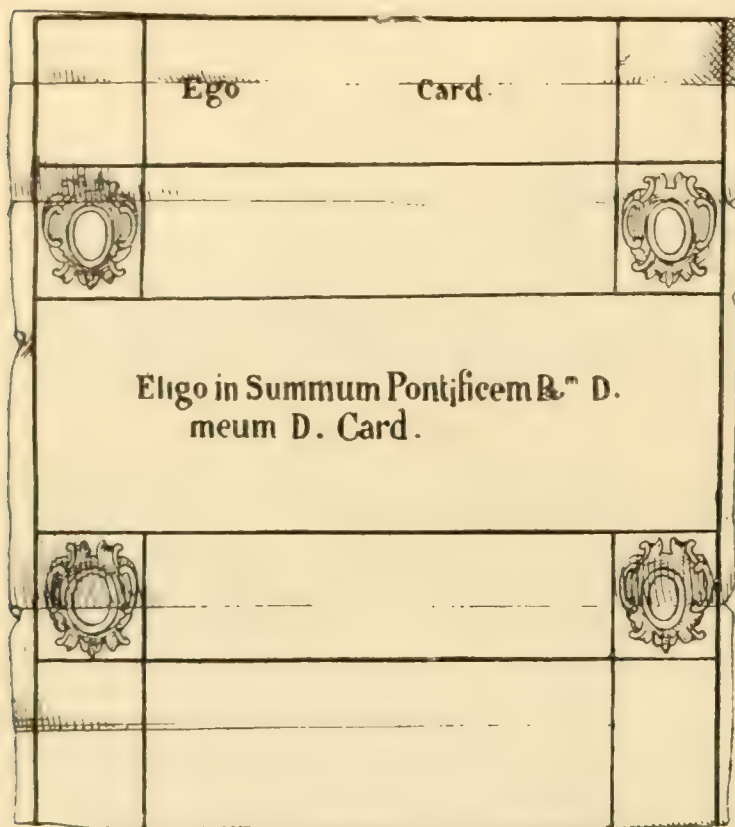 Ego Card.
Eligo in Summum Pontificem R.ᵐ D.
meum D. Card.